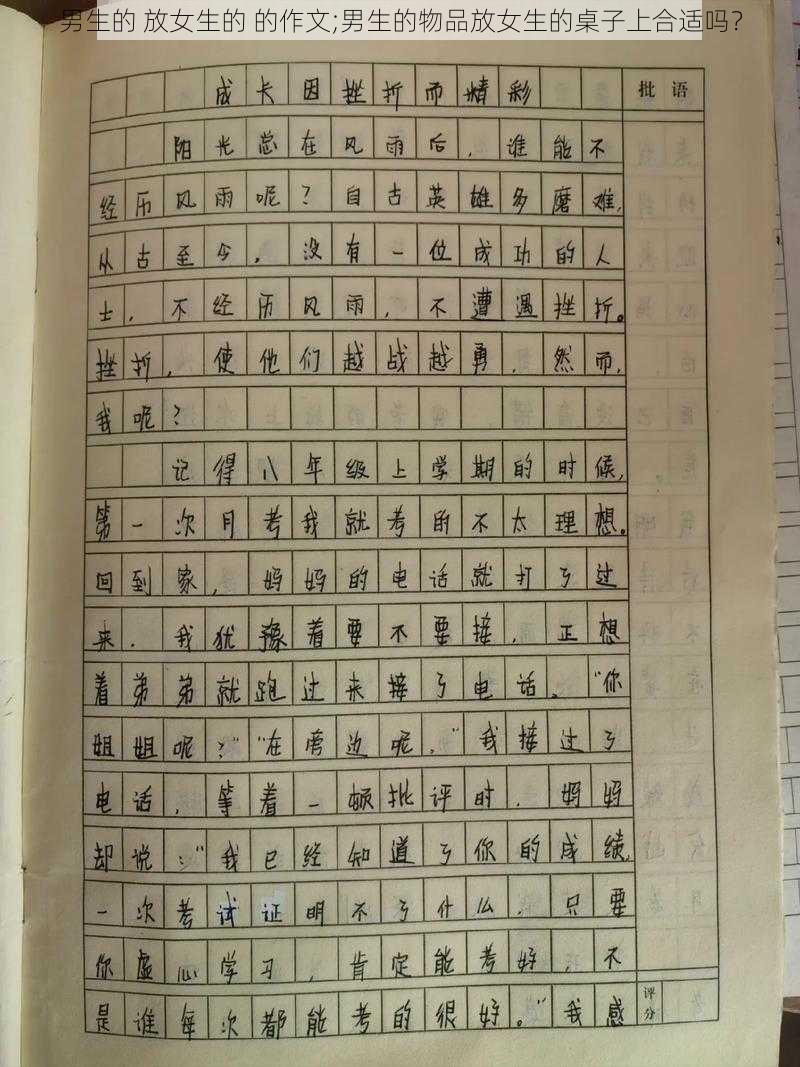 男生的 放女生的 的作文;男生的物品放女生的桌子上合适吗?
成长因挫折而精彩
批语
阳光总在风雨后，谁能不
经历风雨呢？自古英雄多磨难，
从古至今，没有一位成功的人
士，不经历风雨，不遭遇挫折。
挫折，使他们越战越勇，然而，
我呢？
记得八年级上学期的时候，
第一次月考我就考的不太理想。
回到家，妈妈的电话就打了过
来，我犹豫着要不要接，正想
着弟弟就跑过来接了电话。“你
姐姐呢？”“在旁边呢，”我接过了
电话，等着一顿批评时，妈妈
却说：“我已经知道了你的成绩，
一次考试证明不了什么，只要
你虚心学习，肯定能考好，不
是谁每次都能考的很好。”我感
评分